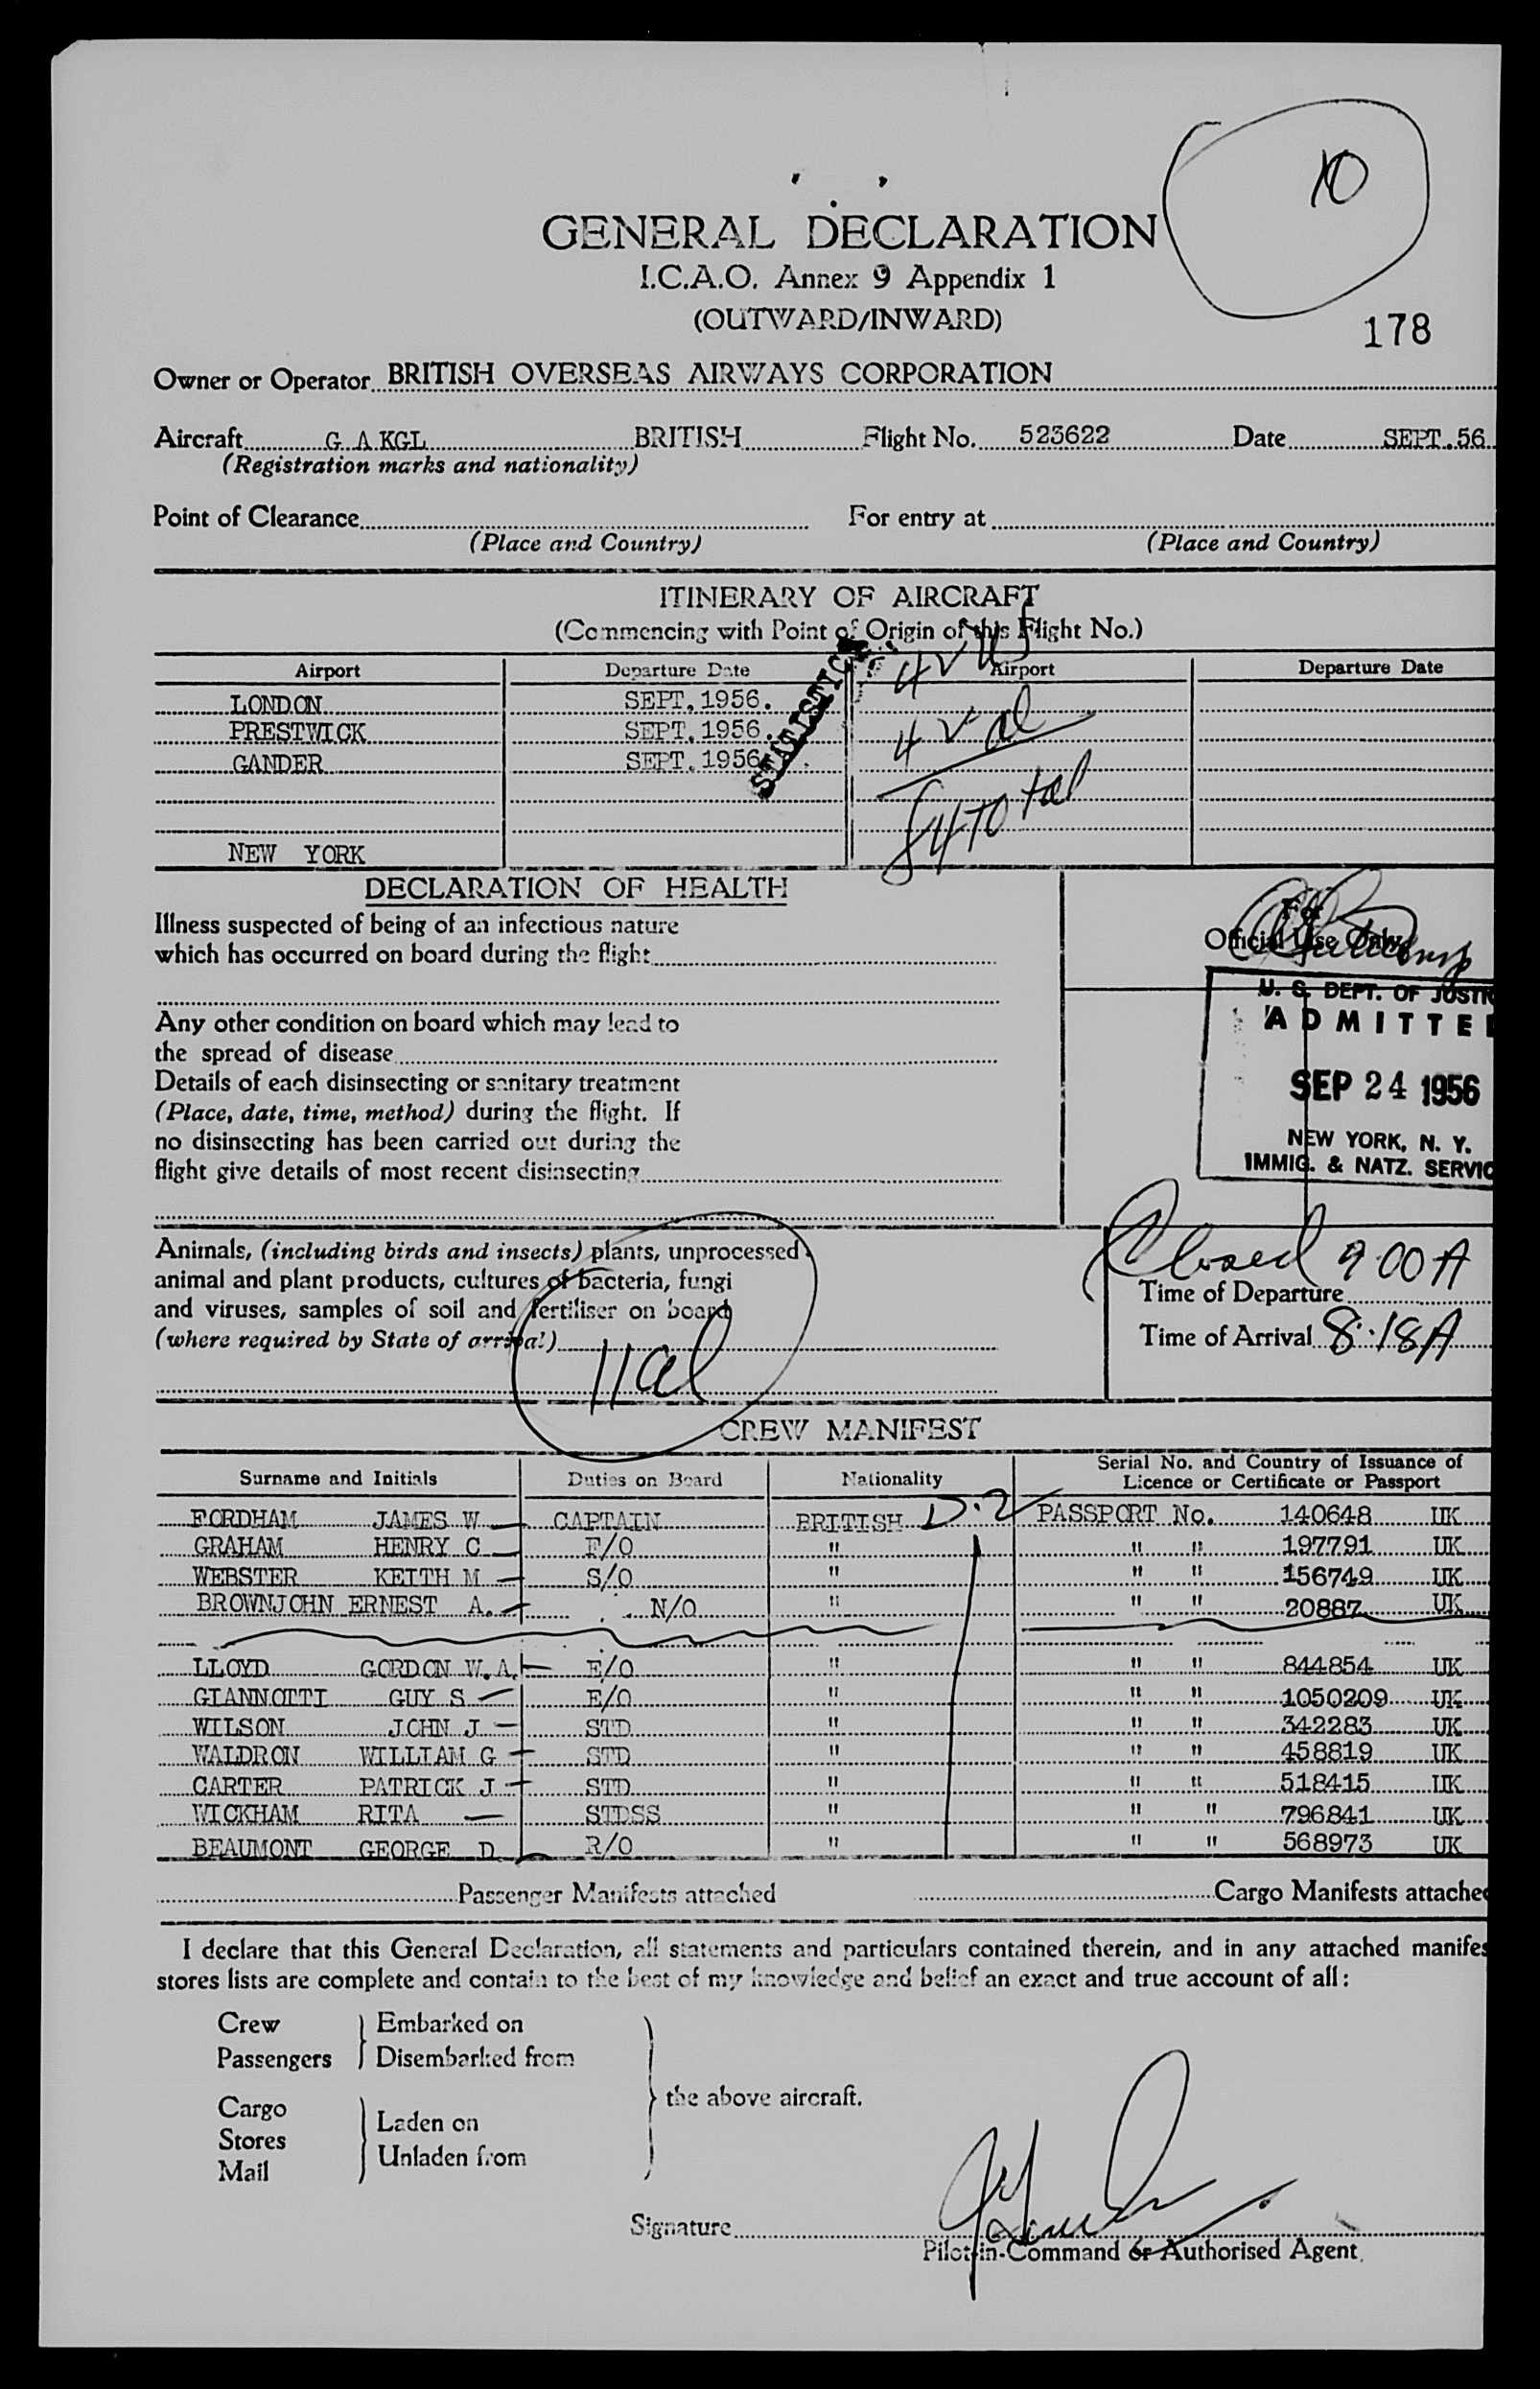 10
GENERAL DECLARATION
I.C.A.O. Annex 9 Appendix 1
(OUTWARD/INWARD)
178
Owner or Operator BRITISH OVERSEAS AIRWAYS CORPORATION
Aircraft G A KGL BRITISH Flight No. 523622 Date SEPT.56
(Registration marks and nationality)
Point of Clearance For entry at
(Place and Country) (Place and Country)
ITINERARY OF AIRCRAFT
(Commencing with Point of Origin of this Flight No.)
Airport Departure Date Airport Departure Date
LONDON SEPT.1956.
PRESTWICK SEPT.1956.
GANDER SEPT.1956
NEW YORK
STATISTICS
4 v us
4 v al
84 total
DECLARATION OF HEALTH
Illness suspected of being of an infectious nature
which has occurred on board during the flight
Any other condition on board which may lead to
the spread of disease
Details of each disinsecting or sanitary treatment
(Place, date, time, method) during the flight. If
no disinsecting has been carried out during the
flight give details of most recent disinsecting
For
Official Use Only
U. S. DEPT. OF JUSTIC
ADMITTE
SEP 24 1956
NEW YORK, N. Y.
IMMIG. & NATZ. SERVIC
Animals, (including birds and insects) plants, unprocessed
animal and plant products, cultures of bacteria, fungi
and viruses, samples of soil and fertiliser on board
(where required by State of arrival)
11 al
Closed 9 00 A
Time of Departure
Time of Arrival 8:18 A
CREW MANIFEST
Surname and Initials Duties on Board Nationality Serial No. and Country of Issuance of Licence or Certificate or Passport
FORDHAM JAMES W CAPTAIN BRITISH D.2 PASSPORT No. 140648 UK
GRAHAM HENRY C F/O " " " 197791 UK
WEBSTER KEITH M S/O " " " 156749 UK
BROWNJOHN ERNEST A. N/O " " " 20887 UK
LLOYD GORDON W.A. E/O " " " 844854 UK
GIANNOTTI GUY S E/O " " " 1050209 UK
WILSON JOHN J STD " " " 342283 UK
WALDRON WILLIAM G STD " " " 458819 UK
CARTER PATRICK J STD " " " 518415 UK
WICKHAM RITA STDSS " " " 796841 UK
BEAUMONT GEORGE D R/O " " " 568973 UK
Passenger Manifests attached Cargo Manifests attached
I declare that this General Declaration, all statements and particulars contained therein, and in any attached manifes
stores lists are complete and contain to the best of my knowledge and belief an exact and true account of all:
Crew Embarked on
Passengers Disembarked from
the above aircraft.
Cargo Laden on
Stores
Mail Unladen from
Signature
Pilot-in-Command or Authorised Agent.